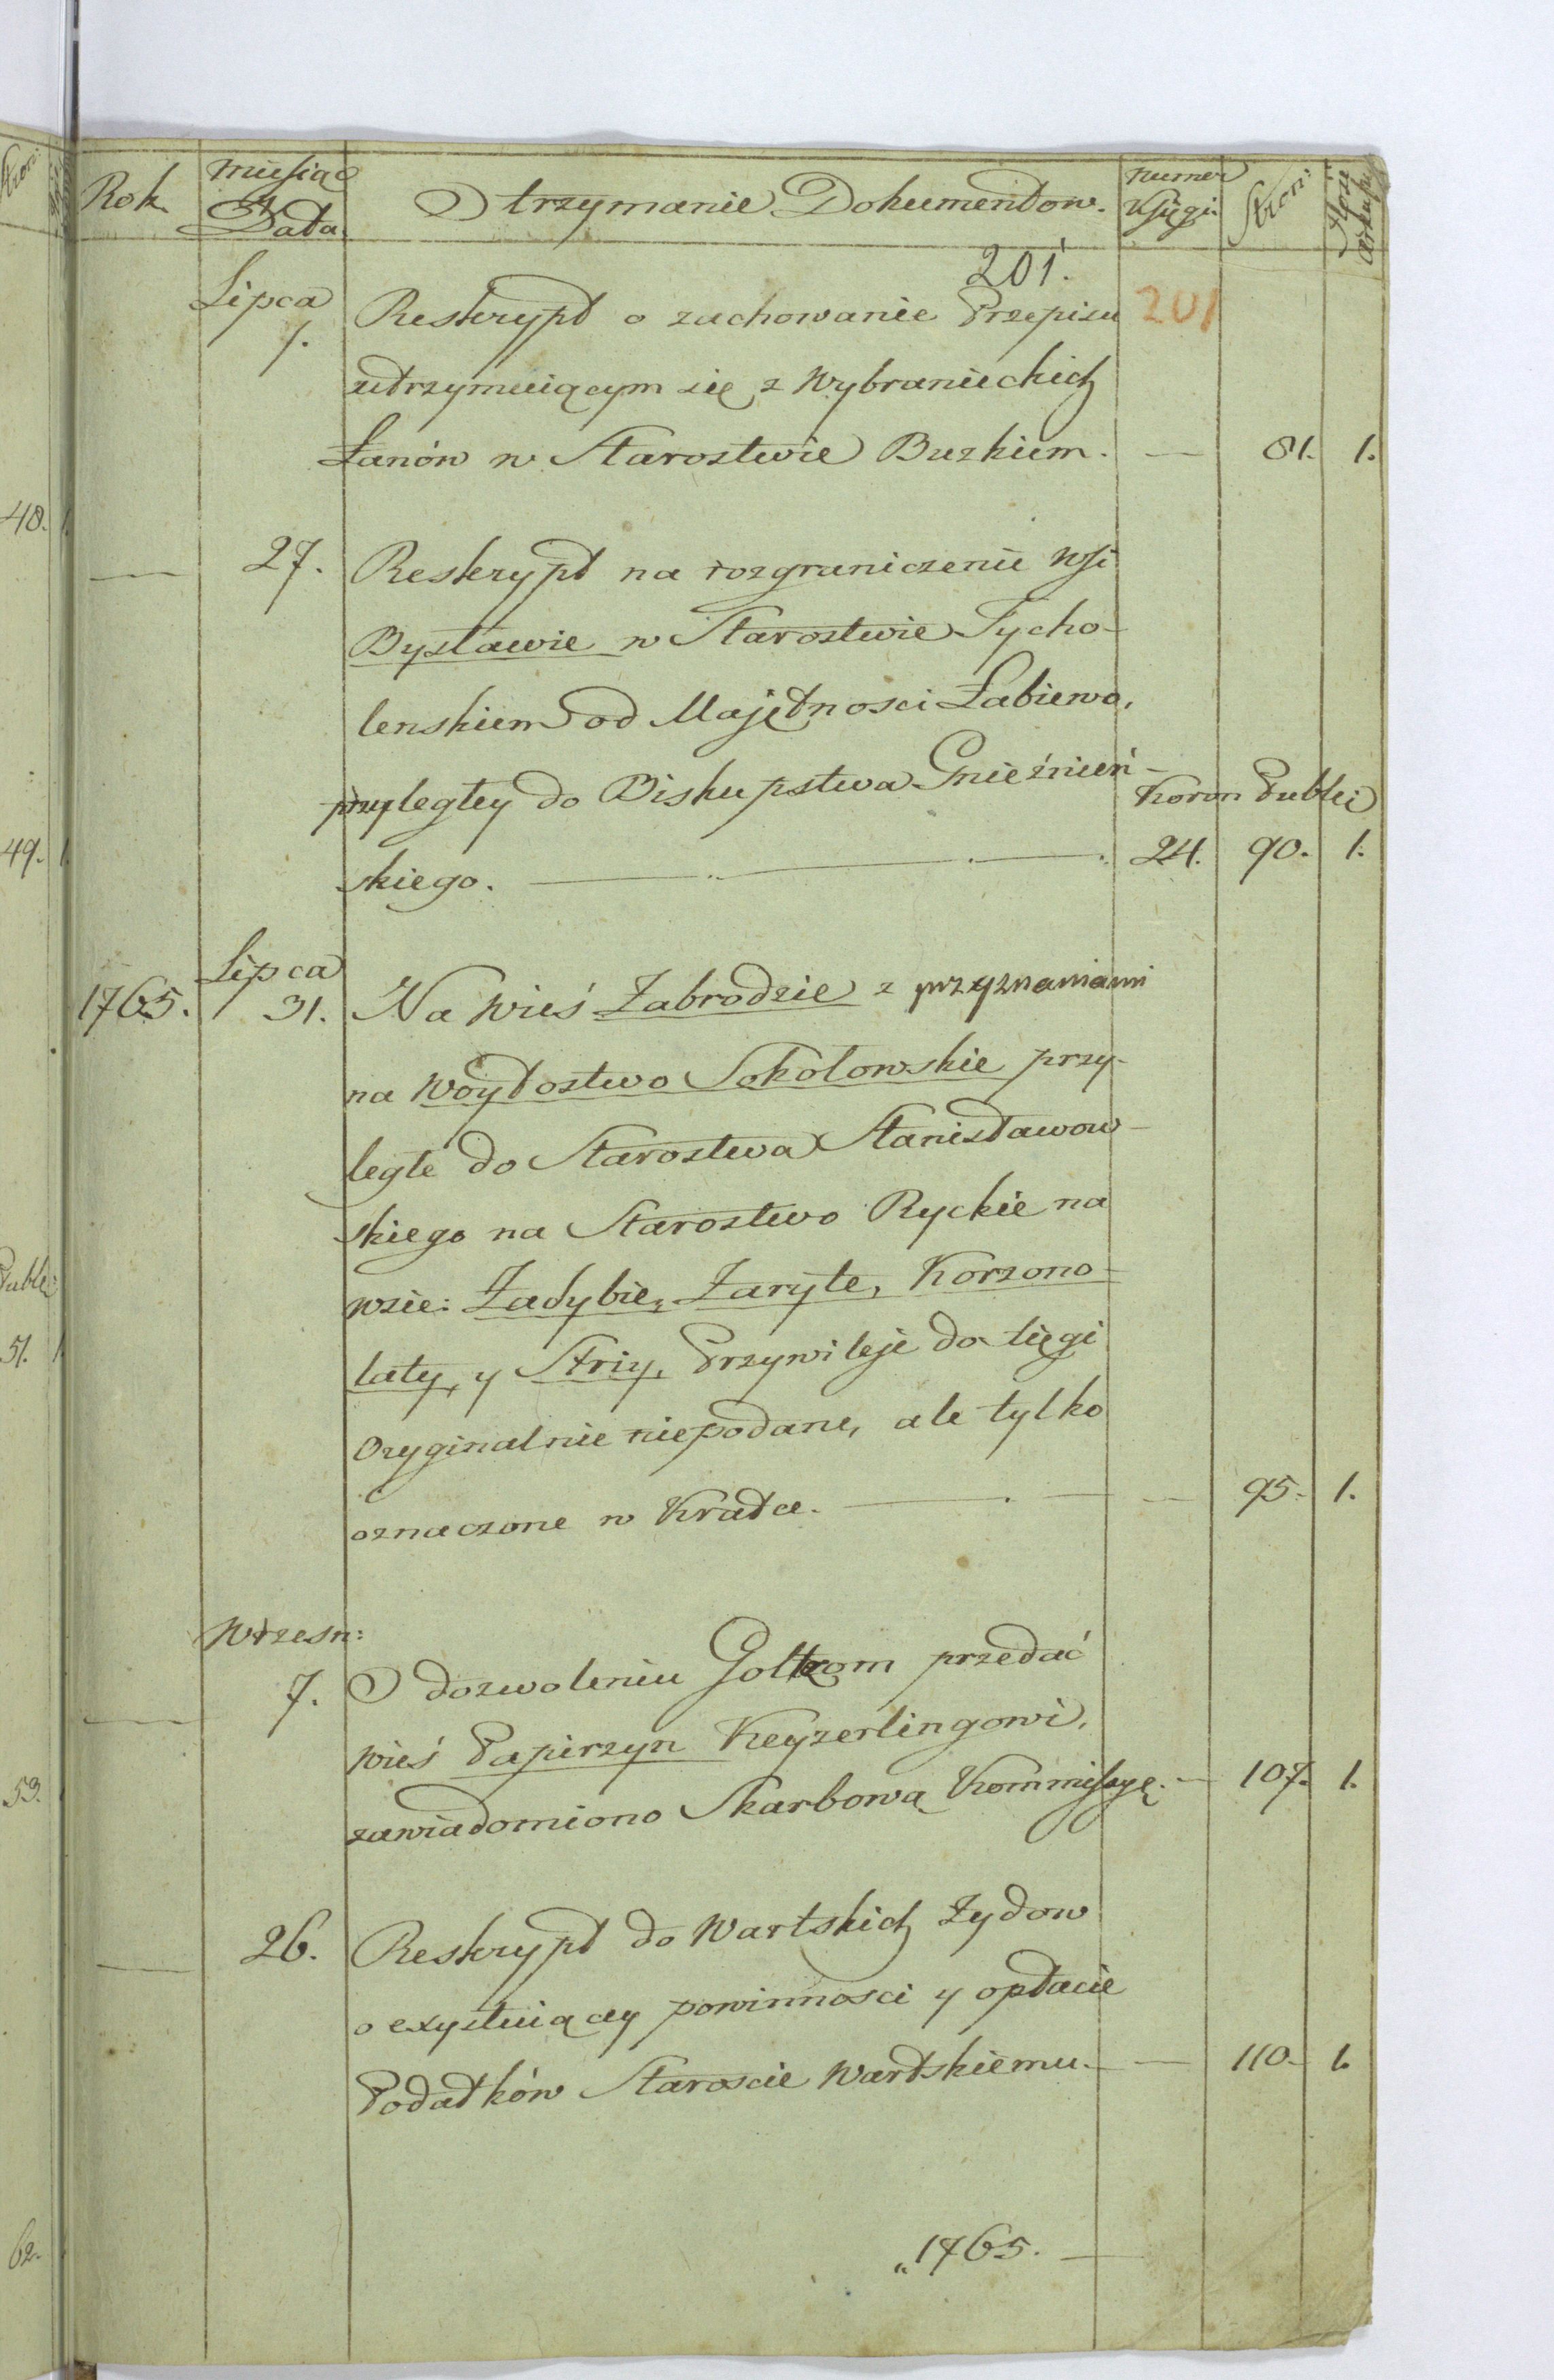 Rok
miesiąc
y
Data
Otrzymanie Dokumentow.
numer
Księgi
Stron:
201.
201
Lipca
1.
Reskrypt o zachowanie Przepisu
utrzymuiącym się z Wybranieckich
Łanów w Starostwie Buzkiem. — 81. 1.
— 27. Reskrypt na rozgraniczenie wsi
Bysławie w Starostwie Tycho-
lenskiem od Majętnosci Łabiewo,
przyległey do Biskupstwa Gnieźnień-
Koron Publi:
skiego. — 24. 90. 1.
Lipca
1765. 31. Na Wieś Zabrodzie z przyznaniami
na Woytostwo Sokołowskie przy-
ległe do Starostwa Stanisławow-
skiego na Starostwo Ryckie na
wsie: Zadybie, Zaryte, Korzono-
łaty, y Striy, Przywileje do tięgi
Oryginalnie niepodane, ale tylko
oznaczone w Kratce. — 95. 1.
Wrzesn:
— 7. O dozwoleniu Goltzom przedać
wieś Papierzyn Keyzerlingowi,
zawiadomiono Skarbową Kommissyę. — 107. 1.
— 26. Reskrypt do Wartskich Zydow
o exystuiącey powinnosci y opłacie
Podatków Staroscie Wartskiemu. — 110. 1.
„1765. —
48.
49. 1.
Publi:
51. 1
53.
62.